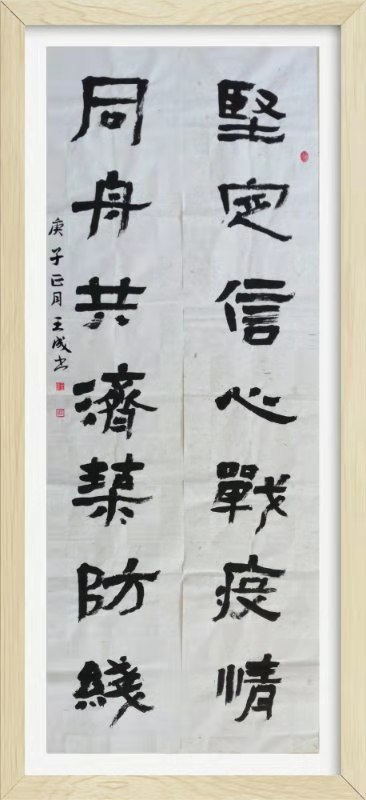 堅定信心戰疫情
同舟共濟築防綫
庚子正月王成书